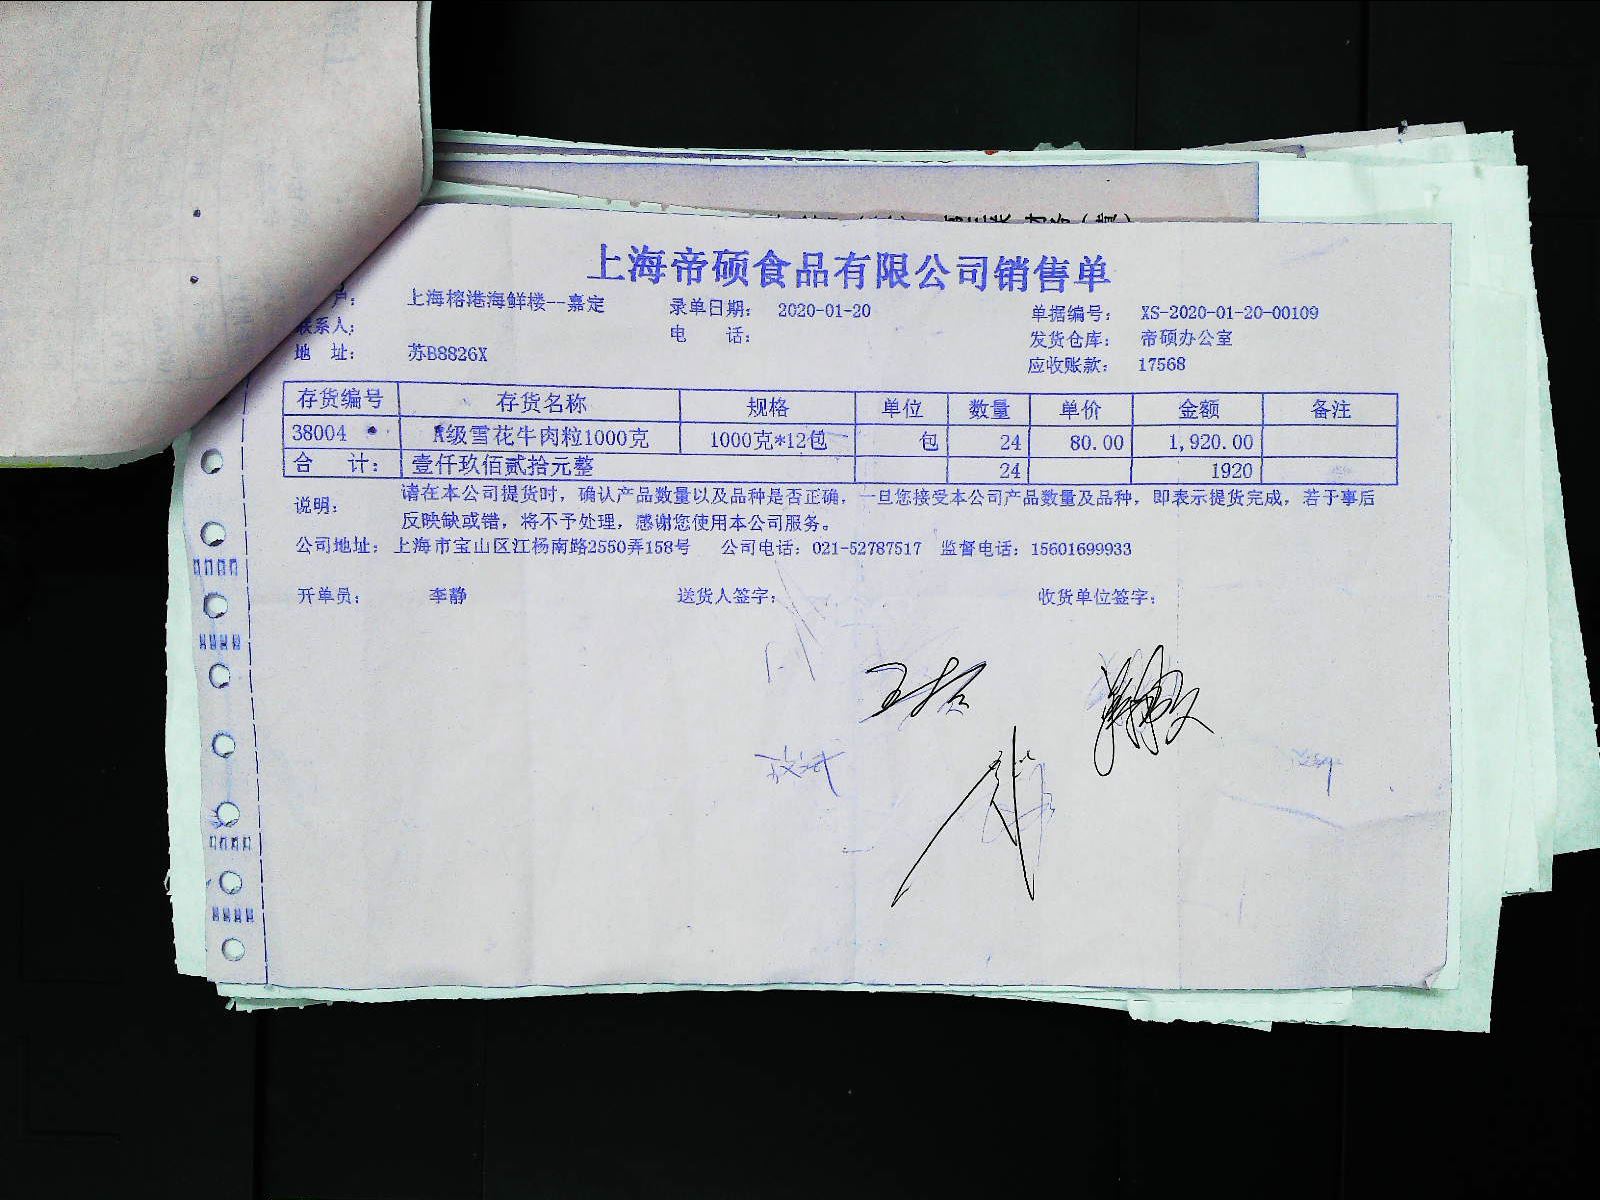 上海帝硕食品有限公司销售单
户： 上海榕港海鲜楼--嘉定 录单日期： 2020-01-20 单据编号： XS-2020-01-20-00109
联系人： 电 话： 发货仓库： 帝硕办公室
地 址： 苏B8826X 应收账款： 17568
存货编号 存货名称 规格 单位 数量 单价 金额 备注
38004 A级雪花牛肉粒1000克 1000克*12包 包 24 80.00 1,920.00
合 计： 壹仟玖佰贰拾元整 24 1920
说明： 请在本公司提货时，确认产品数量以及品种是否正确，一旦您接受本公司产品数量及品种，即表示提货完成，若于事后
反映缺或错，将不予处理，感谢您使用本公司服务。
公司地址： 上海市宝山区江杨南路2550弄158号 公司电话：021-52787517 监督电话：15601699933
开单员： 李静 送货人签字： 收货单位签字：